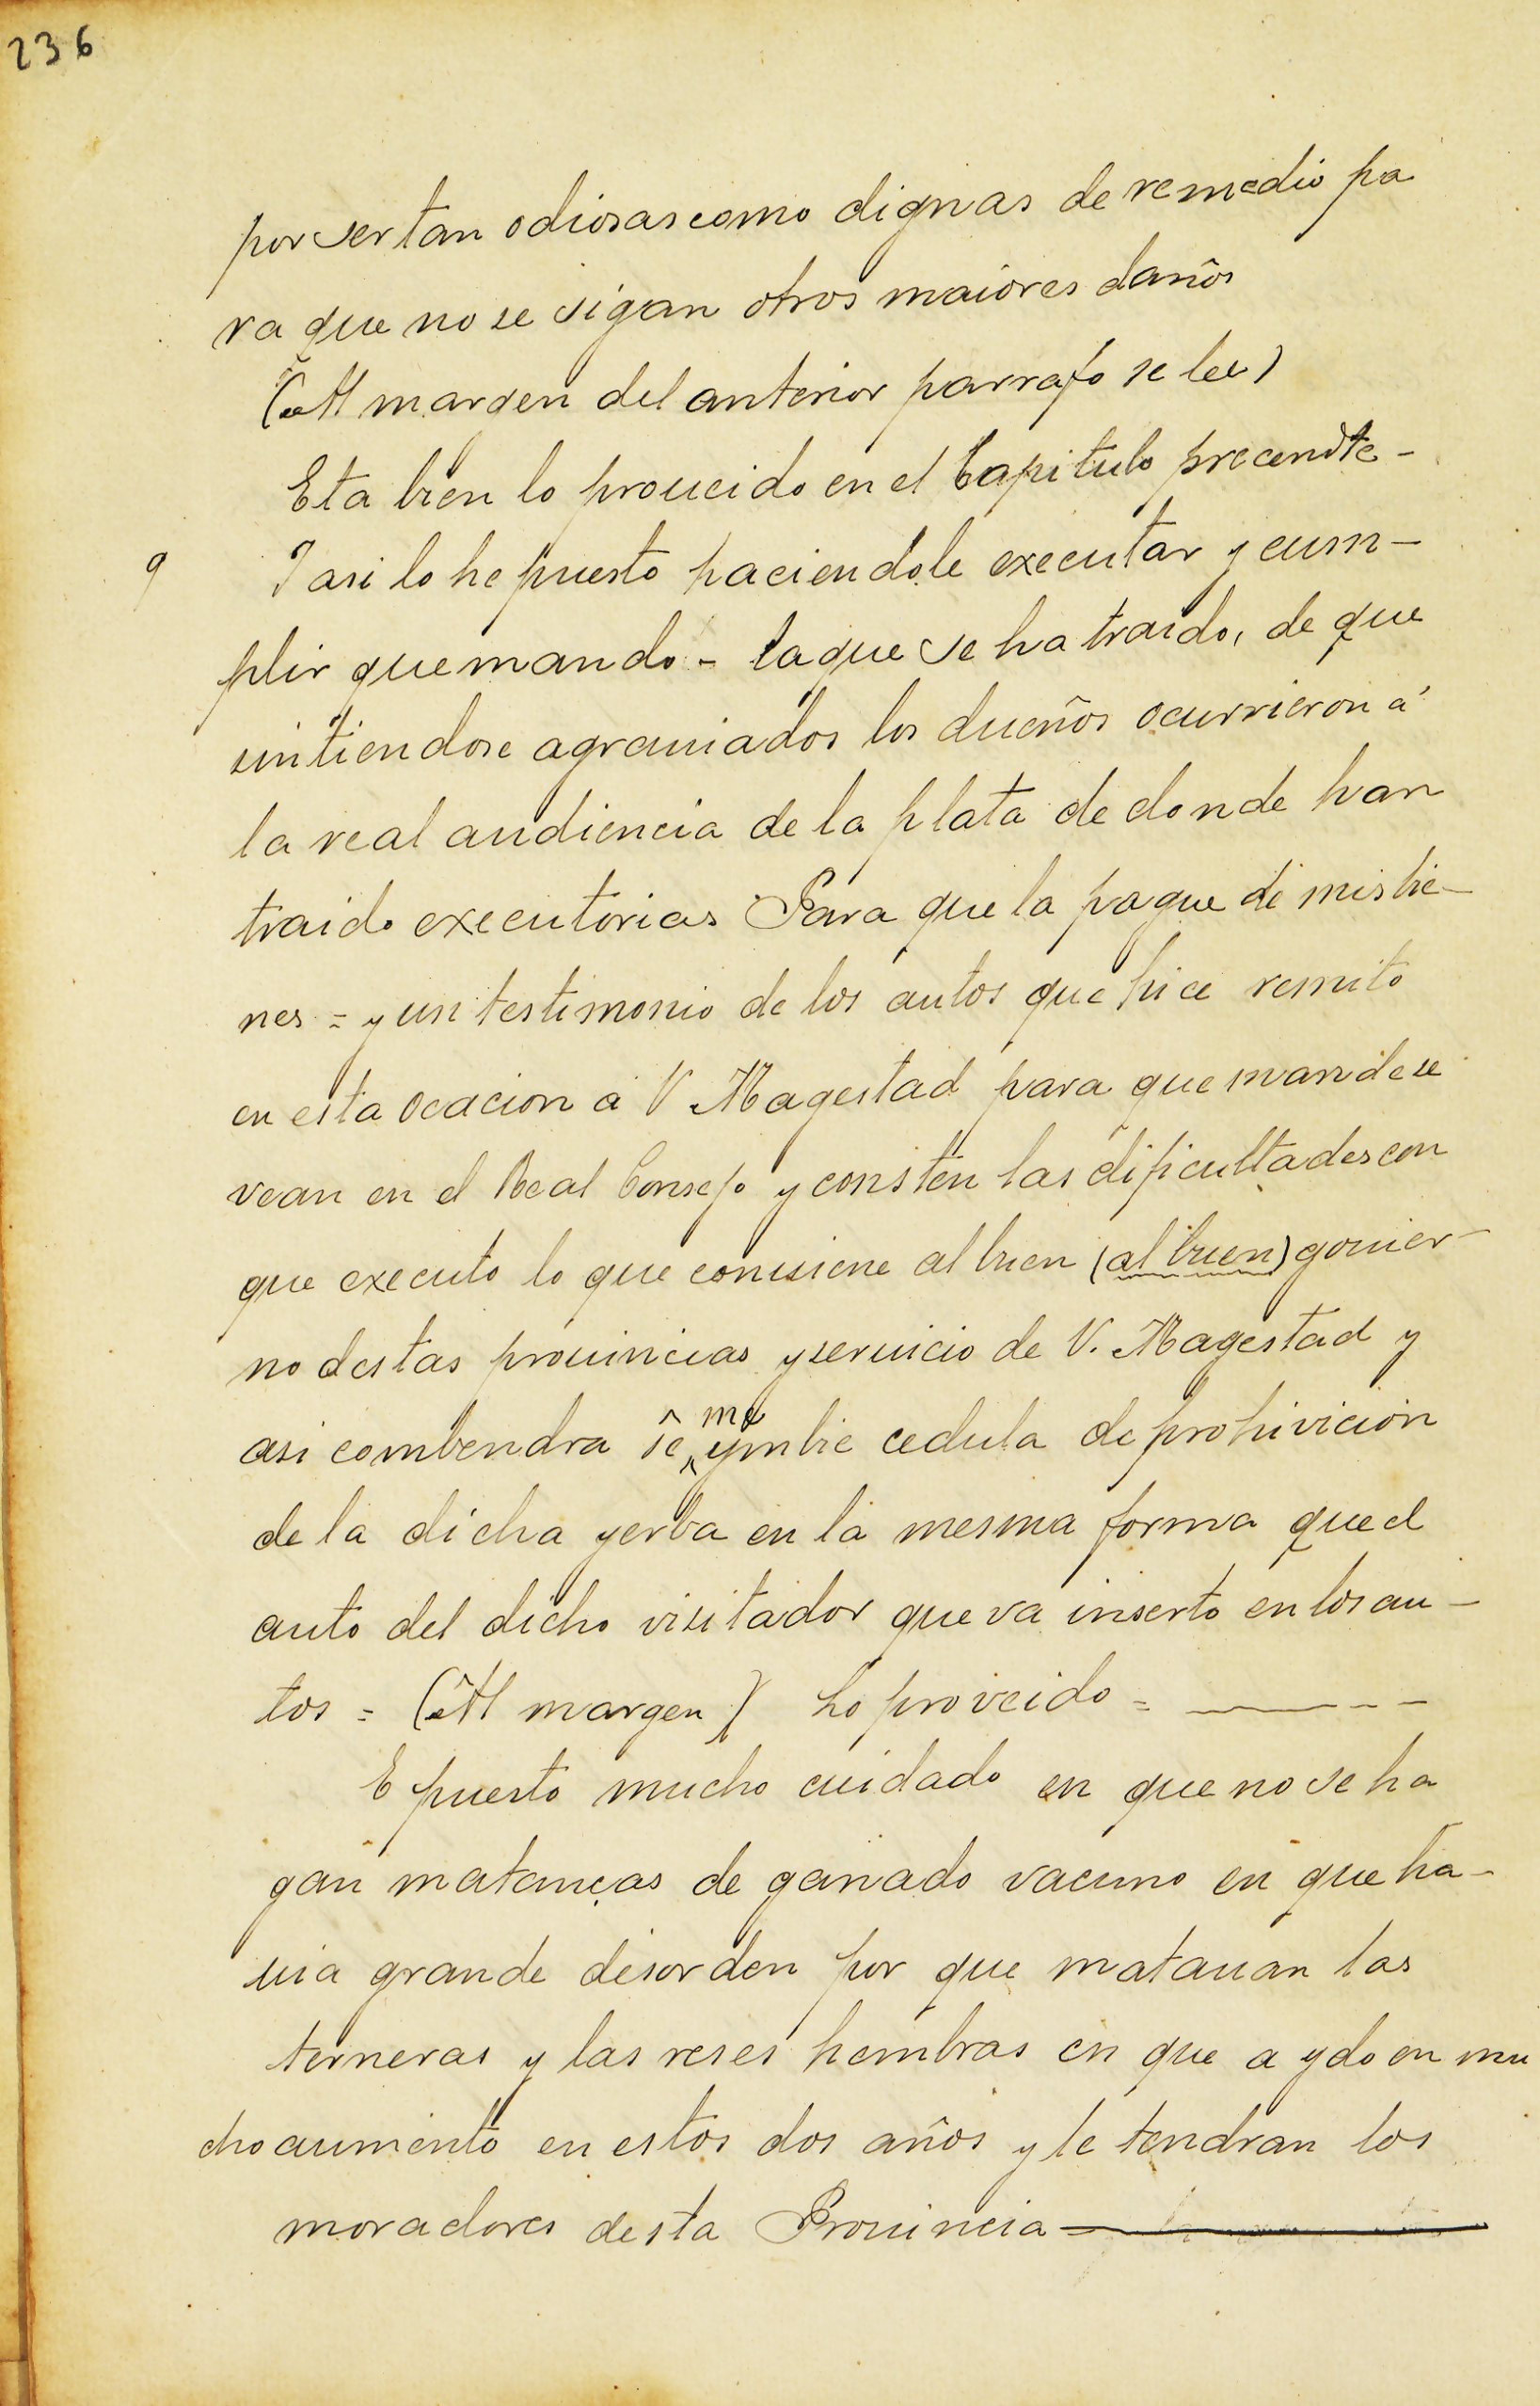 236
por ser tan odiosas como dignas de remedio pa
ra que no se sigan otros maiores daños
(Al margen del anterior parrafo se lee)
Eta bien lo proueido en el Capitulo precendte-
9 I asi lo he puesto haciendole executar y cum-
plir quemando - la que se ha traido, de que
sintiendose agrauiados los dueños ocurrieron á
la real audiencia de la plata de donde han
traido executorias Para que la pague de mis bie-
nes = y un testimonio de los autos que hice remito
en esta ocacion a V Magestad para que mande se
vean en el Real Consejo y consten las dificultades con
que executo lo que conuiene al buen (al buen) gouier-
no destas prouincias y seruicio de V. Magestad y
asi combendra se me ymbie cedula de prohivicion
de la dicha yerba en la mesma forma que el
auto del dicho visitador que va inserto en los au-
tos = (Al margen) Lo proveido =
E puesto mucho cuidado en que no se ha
gan matanças de ganado vacuno en que ha-
uia grande desorden por que matauan las
terneras y las reses hembras en que a ydo en mu
cho aumento en estos dos años y le tendran los
moradores desta Prouincia